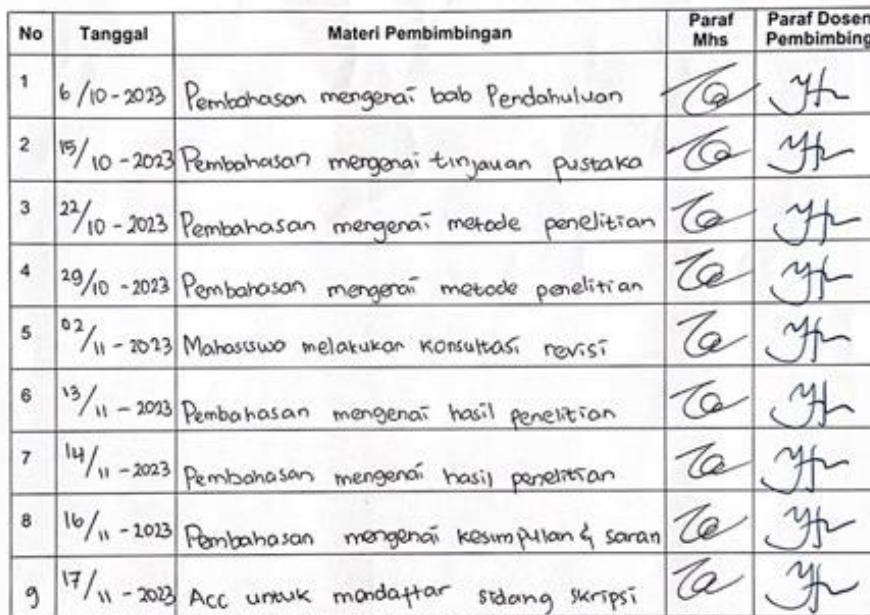 No Tanggal Materi Pembimbingan Paraf Mhs Paraf Dosen Pembimbing
1 6/10-2023 Pembahasan mengenai bab Pendahuluan
2 15/10-2023 Pembahasan mengenai tinjauan pustaka
3 22/10-2023 Pembahasan mengenai metode penelitian
4 29/10-2023 Pembahasan mengenai metode penelitian
5 02/11-2023 Mahasiswa melakukan konsultasi revisi
6 13/11-2023 Pembahasan mengenai hasil penelitian
7 14/11-2023 Pembahasan mengenai hasil penelitian
8 16/11-2023 Pembahasan mengenai kesimpulan & saran
9 17/11-2023 Acc untuk mendaftar sidang skripsi